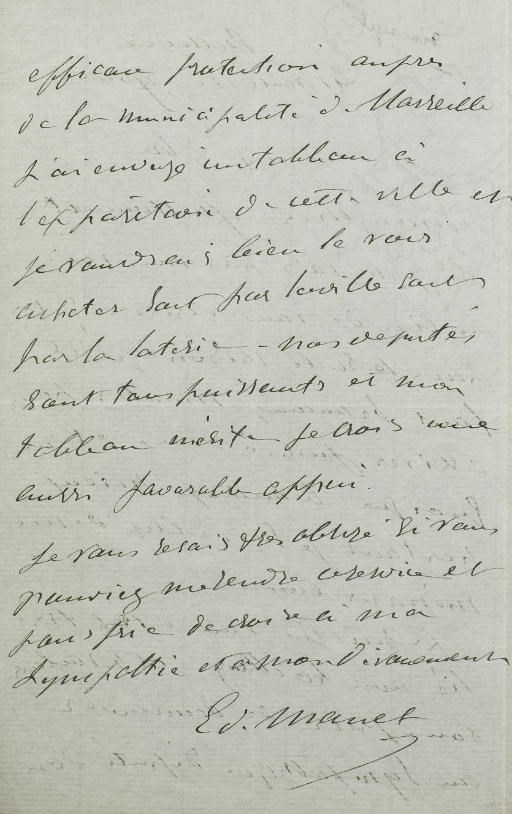 efficace protection auprès
de la municipalité de Marseille
j'ai envoyé un tableau à
l'exposition de cette ville et
je voudrais bien le voir
acheter soit par la ville soit
par la loterie - nos députés
sont tous puissants et mon
tableau mérite je crois une
aussi favorable appui.
je vous serais très obligé si vous
pouviez me rendre ce service et
vous prie de croire à ma
sympathie et à mon dévouement
Ed. Manet